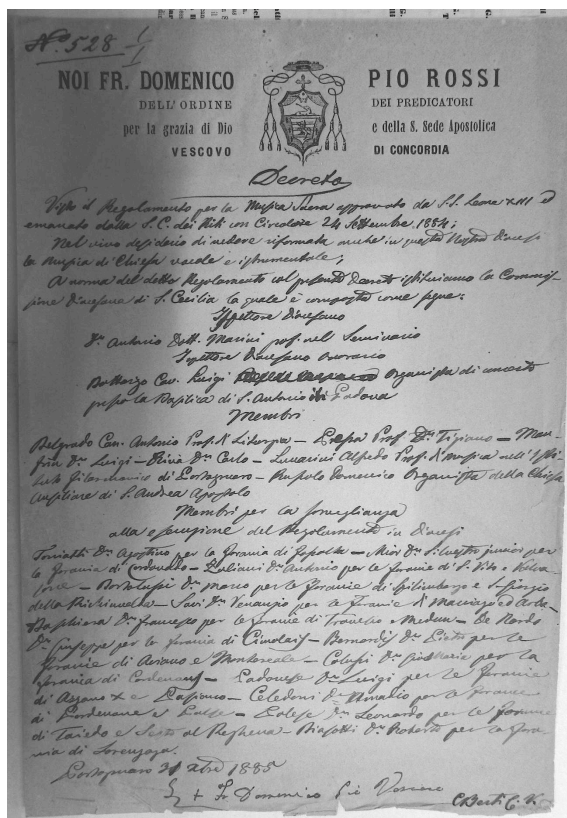 N.º 528
NOI FR. DOMENICO PIO ROSSI
DELL'ORDINE DEI PREDICATORI
per la grazia di Dio e della S. Sede Apostolica
VESCOVO DI CONCORDIA
Decreto
Visto il Regolamento per la Musica Sacra approvato da S.S. Leone XIII ed
emanato dalla S.C. dei Riti con Circolare 24 Settembre 1884;
Nel vivo desiderio di vedere riformata anche in questa Nostra Diocesi
la Musica di Chiesa vocale e istrumentale;
A norma del detto Regolamento col presente Decreto istituiamo la Commis-
sione Diocesana di S. Cecilia la quale è composta come segue:
Ispettore Diocesano
Dn. Antonio Dott. Marini prof. nel Seminario
Ispettore Diocesano Onorario
Bottazzo Cav. Luigi Organista di concerto
presso la Basilica di S. Antonio di Padova
Membri
Belgrado Can. Antonio Prof. di Liturgia – Prof. Dn. Tiziano –
Dn. Luigi – Dn. Carlo – Alfredo Prof. di Musica nell'Isti-
tuto Filarmonico di Portogruaro – Domenico Organista della Chiesa
Ausiliare di S. Andrea Apostolo
Membri per la sorveglianza
alla esecuzione del Regolamento in Diocesi
Dn. Agostino per la forania di – Dn. Silvestro junior per
la forania di Cordovado – Dn. Antonio per le foranie di S. Vito e Valva-
sone – Bortolussi Dn. Marco per le foranie di Spilimbergo e S. Giorgio
della Richinvelda – Dn. Venanzio per le foranie di Maniago ed Arba –
Dn. Francesco per le foranie di e Meduno – De Nardo
Dn. Giuseppe per la forania di Cimolais – Dn. per le
foranie di Aviano e Montereale – Colussi Dn. per la
forania di Cordenons – Dn. Luigi per le foranie
di Azzano X e Pasiano – Celedoni Dn. per le foranie
di Pordenone e – Dn. Leonardo per le foranie
di e Sesto al Reghena – Biasotti Dn. Roberto per la fora-
nia di Lorenzaga.
Portogruaro 31 Xbre 1885
+ Fr. Domenico Pio Vescovo